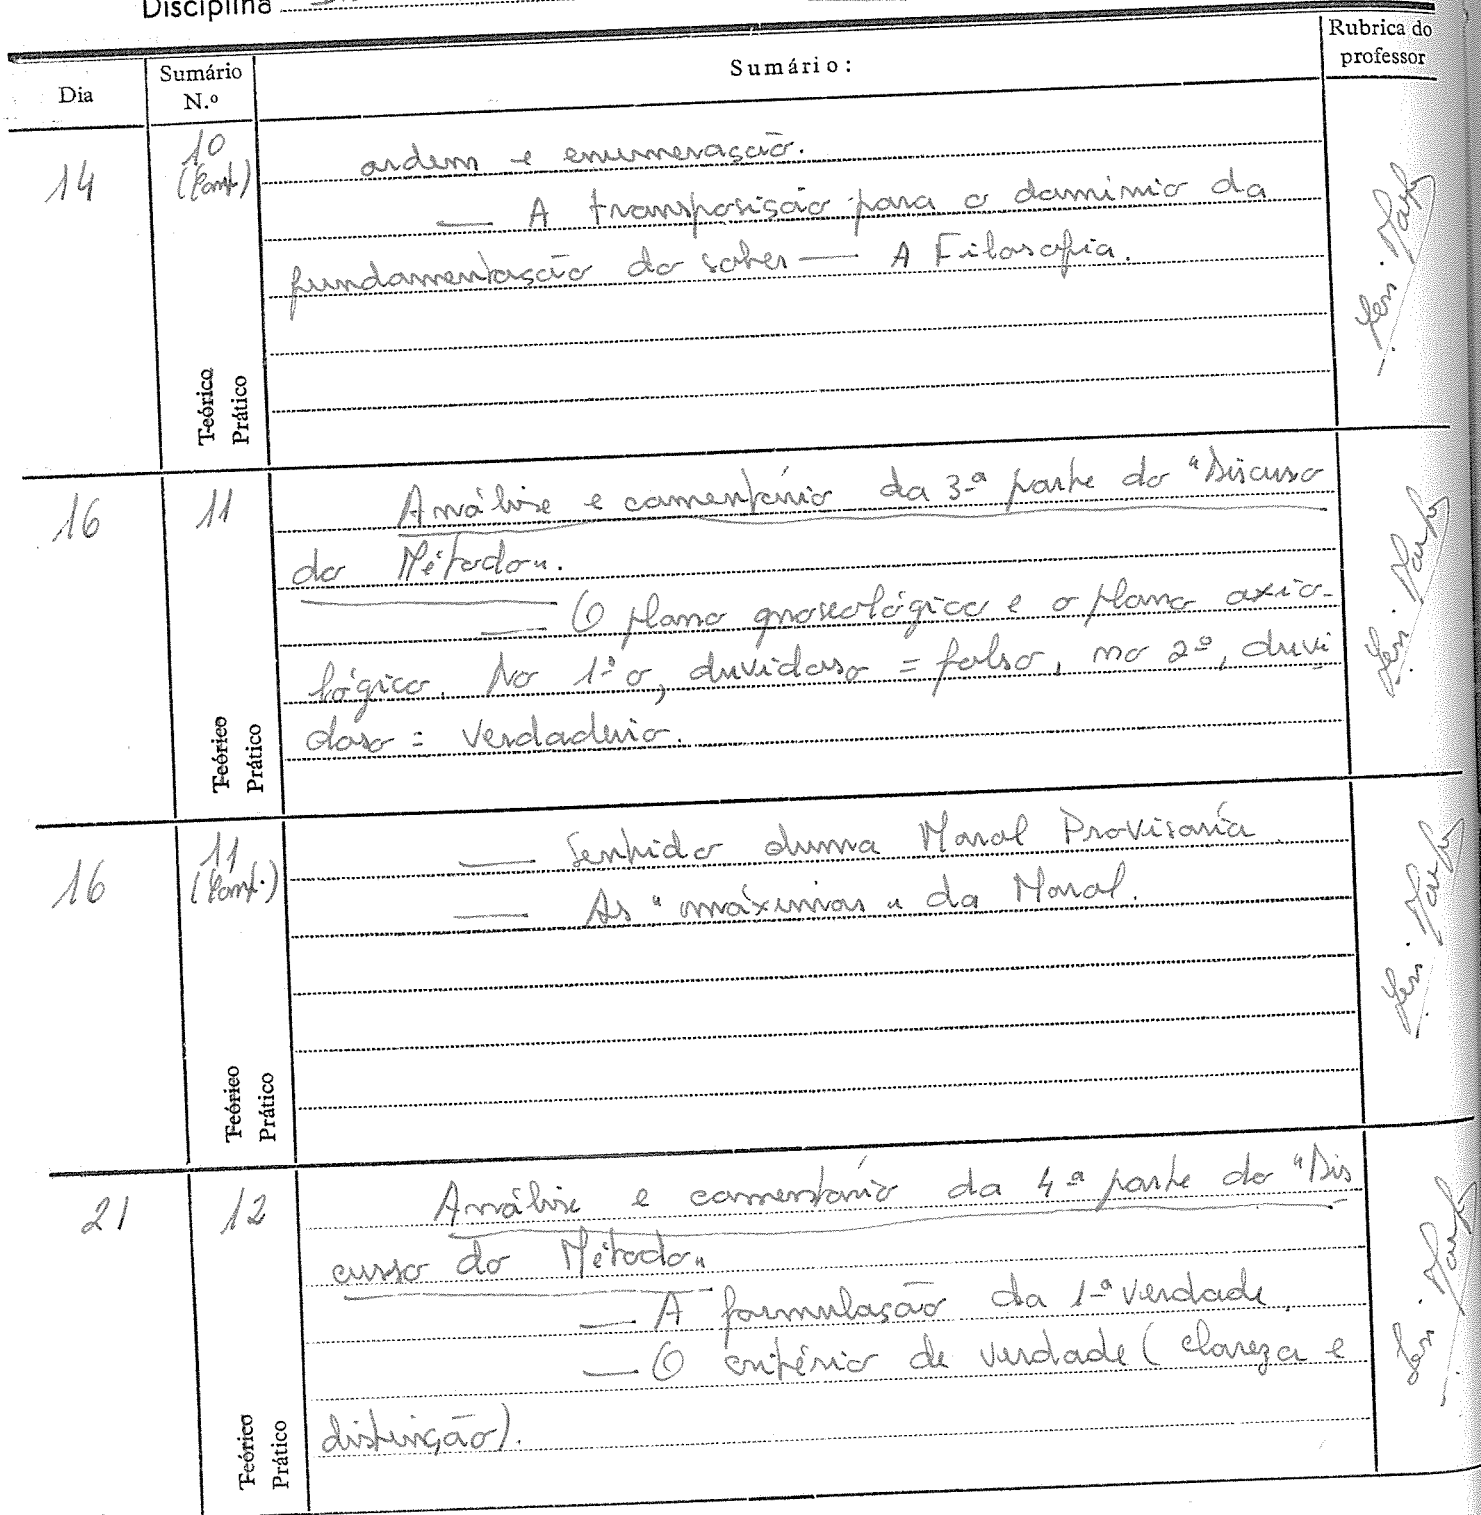 Disciplina
Dia
Sumário
N.º
Sumário:
Rubrica do
professor
14
10
(Cont.)
ordem e enumeração.
— A transposição para o domínio da
fundamentação do saber — A Filosofia.
Teórico
Prático
16
11
Análise e comentário da 3.ª parte do "Discurso
do Método".
— O plano gnoseológico e o plano axio-
lógico. No 1.º o, duvidoso = falso, no 2.º, duvi
doso = verdadeiro.
Teórico
Prático
16
11
(Cont.)
— Sentido duma Moral Provisória
— As "máximas" da Moral.
Teórico
Prático
21
12
Análise e comentário da 4.ª parte do "Dis
curso do Método"
— A formulação da 1.ª verdade.
— O critério de verdade (clareza e
distinção).
Teórico
Prático